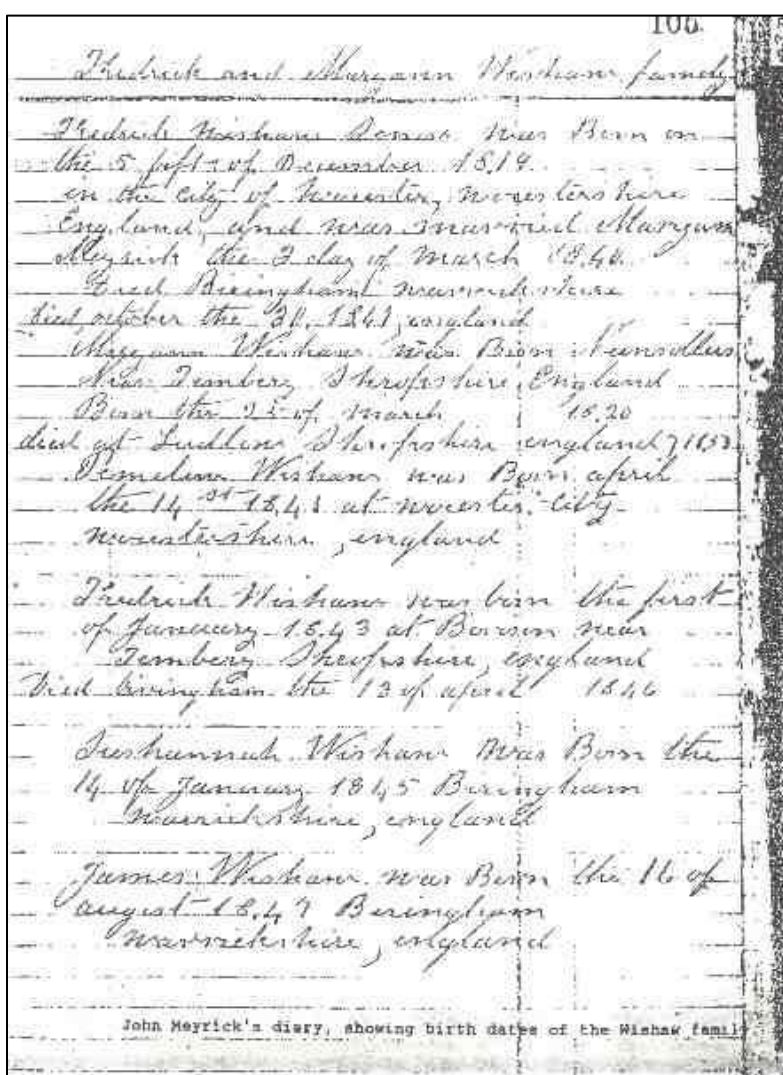 108.
Fredrick and Maryann Wishaw family
Fredrick Wishaw Senior was Born on
the 5 fift of December 1819
in the city of Worester, worestershire
England, and was married Maryann
Meyrick the 2 day of March 1840
Died Biringham warwickshire
died october the 30, 1861, england
Maryann Wishaw was Born
Near Temberg Shropshire, England
Born the 25 of March 1820
died at Ludlow Shropshire england
Wishaw was Born april
the 14 st 1841 at worester city
worestershire, england
Fredrick Wishaw was born the first
of January 1843 at near
Temberg Shropshire, england
Died biringham the 13 of april 1846
Sushannah Wishaw was Born the
14 of January 1845 Biringham
Warwickshire, england
James Wishaw was Born the 16 of
august 1847 Biringham
warwickshire, england
John Meyrick's diary, showing birth dates of the Wishaw famil